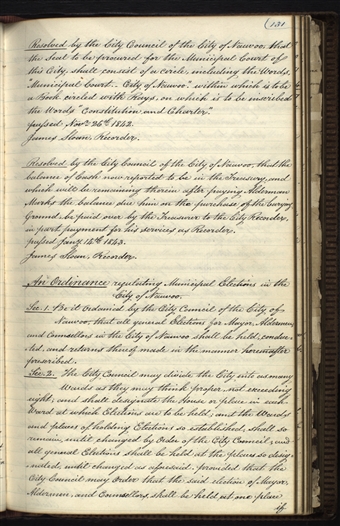 (131)
Resolved by the City Council of the City of Nauvoo, that
the Seal to be procured for the Municipal Court of
this City, shall consist of a circle, including the Words
"Municipal Court. City of Nauvoo." within which is to be
a Book circled with Rays, on which is to be inscribed
the Words "Constitution and Charter."
passed Novr. 26th 1842.
James Sloan, Recorder.
Resolved by the City Council of the City of Nauvoo, that the
balance of Cash now reported to be in the Treasury, and
which will be remaining therein after paying Alderman
Marks the balance due him on the purchase of the burying
Ground, be paid over by the Treasurer to the City Recorder,
in part payment for his services as Recorder.
passed Jany. 14th 1843.
James Sloan, Recorder.
An Ordinance regulating Municipal Elections in the
City of Nauvoo.
Sec. 1. Be it Ordained by the City Council of the City of
Nauvoo, that all general Elections for Mayor, Aldermen,
and Counsellors in the City of Nauvoo shall be held, conduc-
-ted, and returns thereof made in the manner hereinafter
prescribed.
Sec. 2. The City Council may divide the City into as many
Wards as they may think proper, not exceeding
eight, and shall designate the House or place in each
Ward at which Elections are to be held, and the Wards
and places of holding Elections so established, shall so
remain, until changed by Order of the City Council, and
all general Elections shall be held at the places so desig-
-nated, until changed as aforesaid. provided that the
City Council may Order that the said election of Mayor,
Aldermen, and Counsellors, shall be held at one place,
if